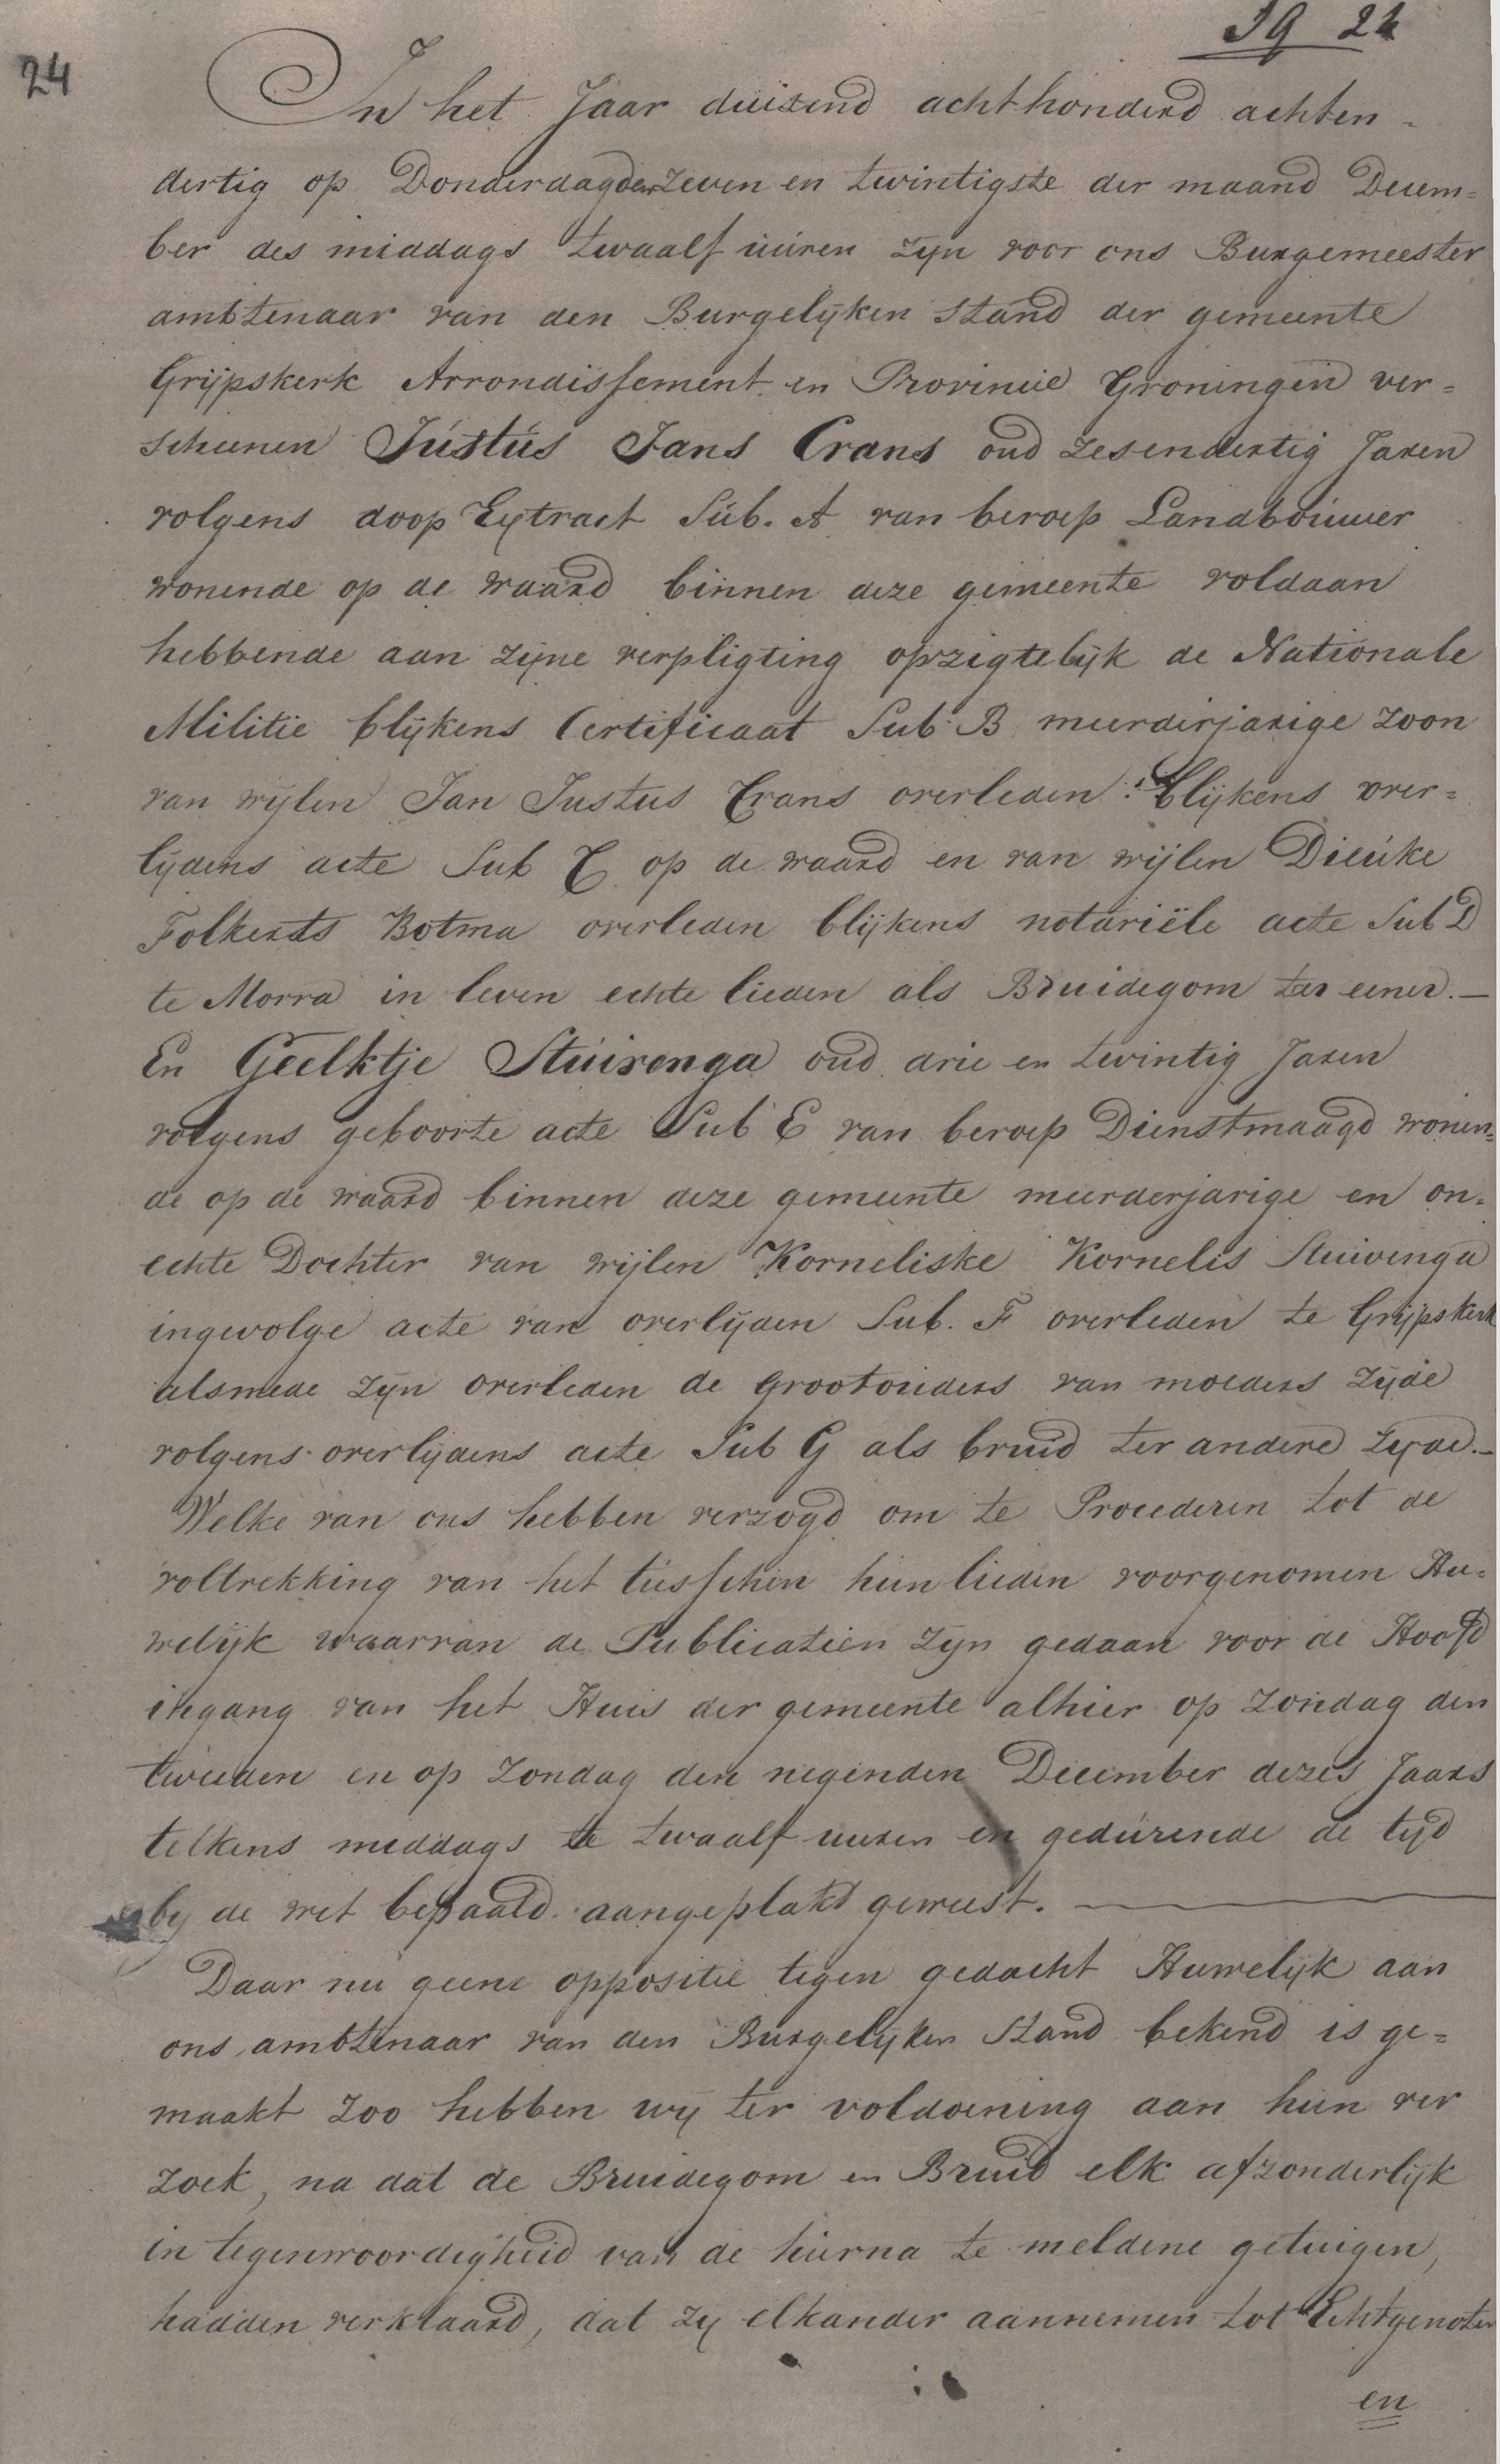 19 24
24
In het Jaar duizend achthonderd achten-
dertig op Donderdag den zeven en twintigste der maand Decem=
ber des middags twaalf uuren zyn voor ons Burgemeester
ambtenaar van den Burgelijken stand der gemeente
Grijpskerk Arrondissement en Provincie Groningen ver=
scheenen Justus Jans Crans oud zesendertig Jaren
volgens doop Extract Sub. A van beroep Landbouwer
wonende op de waard binnen deze gemeente voldaan
hebbende aan zijne verpligting opzigtelijk de Nationale
Militie blijkens Certificaat Sub B meerderjarige zoon
van wijlen Jan Justus Crans overleden blijkens over=
lijdens acte Sub C op de waard en van wijlen Dieuke
Folkerts Botma overleden blijkens notariële acte Sub D
te Morra in leven echte lieden als Bruidegom ter eener.—
En Geelktje Stuivenga oud drie en twintig Jaren
volgens geboorte acte Sub E van beroep Dienstmaagd wonen=
de op de waard binnen deze gemeente meerderjarige en on=
echte Dochter van wijlen Korneliske Kornelis Stuivenga
ingevolge acte van overlijden Sub. F overleden te Grijpskerk
alsmede zijn overleden de Grootouders van moeders zijde
volgens overlijdens acte Sub G als bruid ter andere zyde.—
Welke van ons hebben verzogd om te Procederen tot de
voltrekking van het tusschen hun lieden voorgenomen Hu=
welijk waarvan de Publicatien zijn gedaan voor de Hoofd
ingang van het Huis der gemeente alhier op zondag den
tweeden en op zondag den negenden December dezes Jaars
telkens middags te twaalf uuren en gedurende de tijd
by de wet bepaald aangeplakt geweest.
Daar nu geene oppositie tegen gedacht Huwelijk aan
ons ambtenaar van den Burgelijken Stand bekend is ge=
maakt zoo hebben wij ter voldoening aan hun ver
zoek, na dat de Bruidegom en Bruid elk afzonderlijk
in tegenwoordigheid van de hierna te meldene getuigen,
hadden verklaard, dat zy elkander aannemen tot Echtgenoten
en